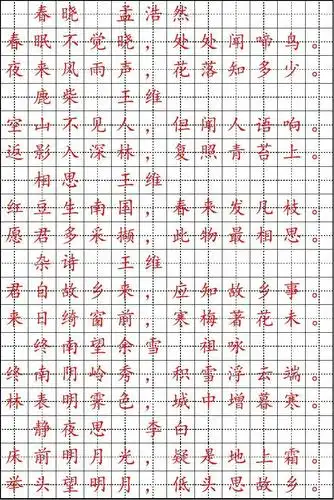 春晓 孟浩然
春眠不觉晓，处处闻啼鸟。
夜来风雨声，花落知多少。
鹿柴 王维
空山不见人，但闻人语响。
返影入深林，复照青苔上。
相思 王维
红豆生南国，春来发几枝。
愿君多采撷，此物最相思。
杂诗 王维
君自故乡来，应知故乡事。
来日绮窗前，寒梅著花未。
终南望余雪 祖咏
终南阴岭秀，积雪浮云端。
林表明霁色，城中增暮寒。
静夜思 李白
床前明月光，疑是地上霜。
举头望明月，低头思故乡。